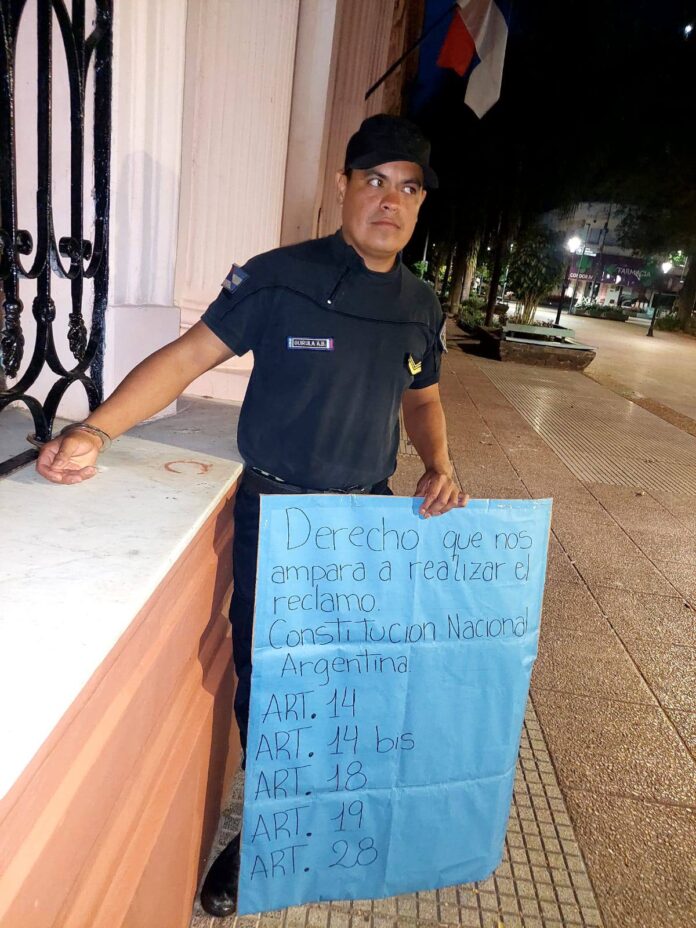 FARMACIA
QUIRULA A.B.
Derecho que nos
ampara a realizar el
reclamo.
Constitucion Nacional
Argentina
ART. 14
ART. 14 bis
ART. 18
ART. 19
ART. 28